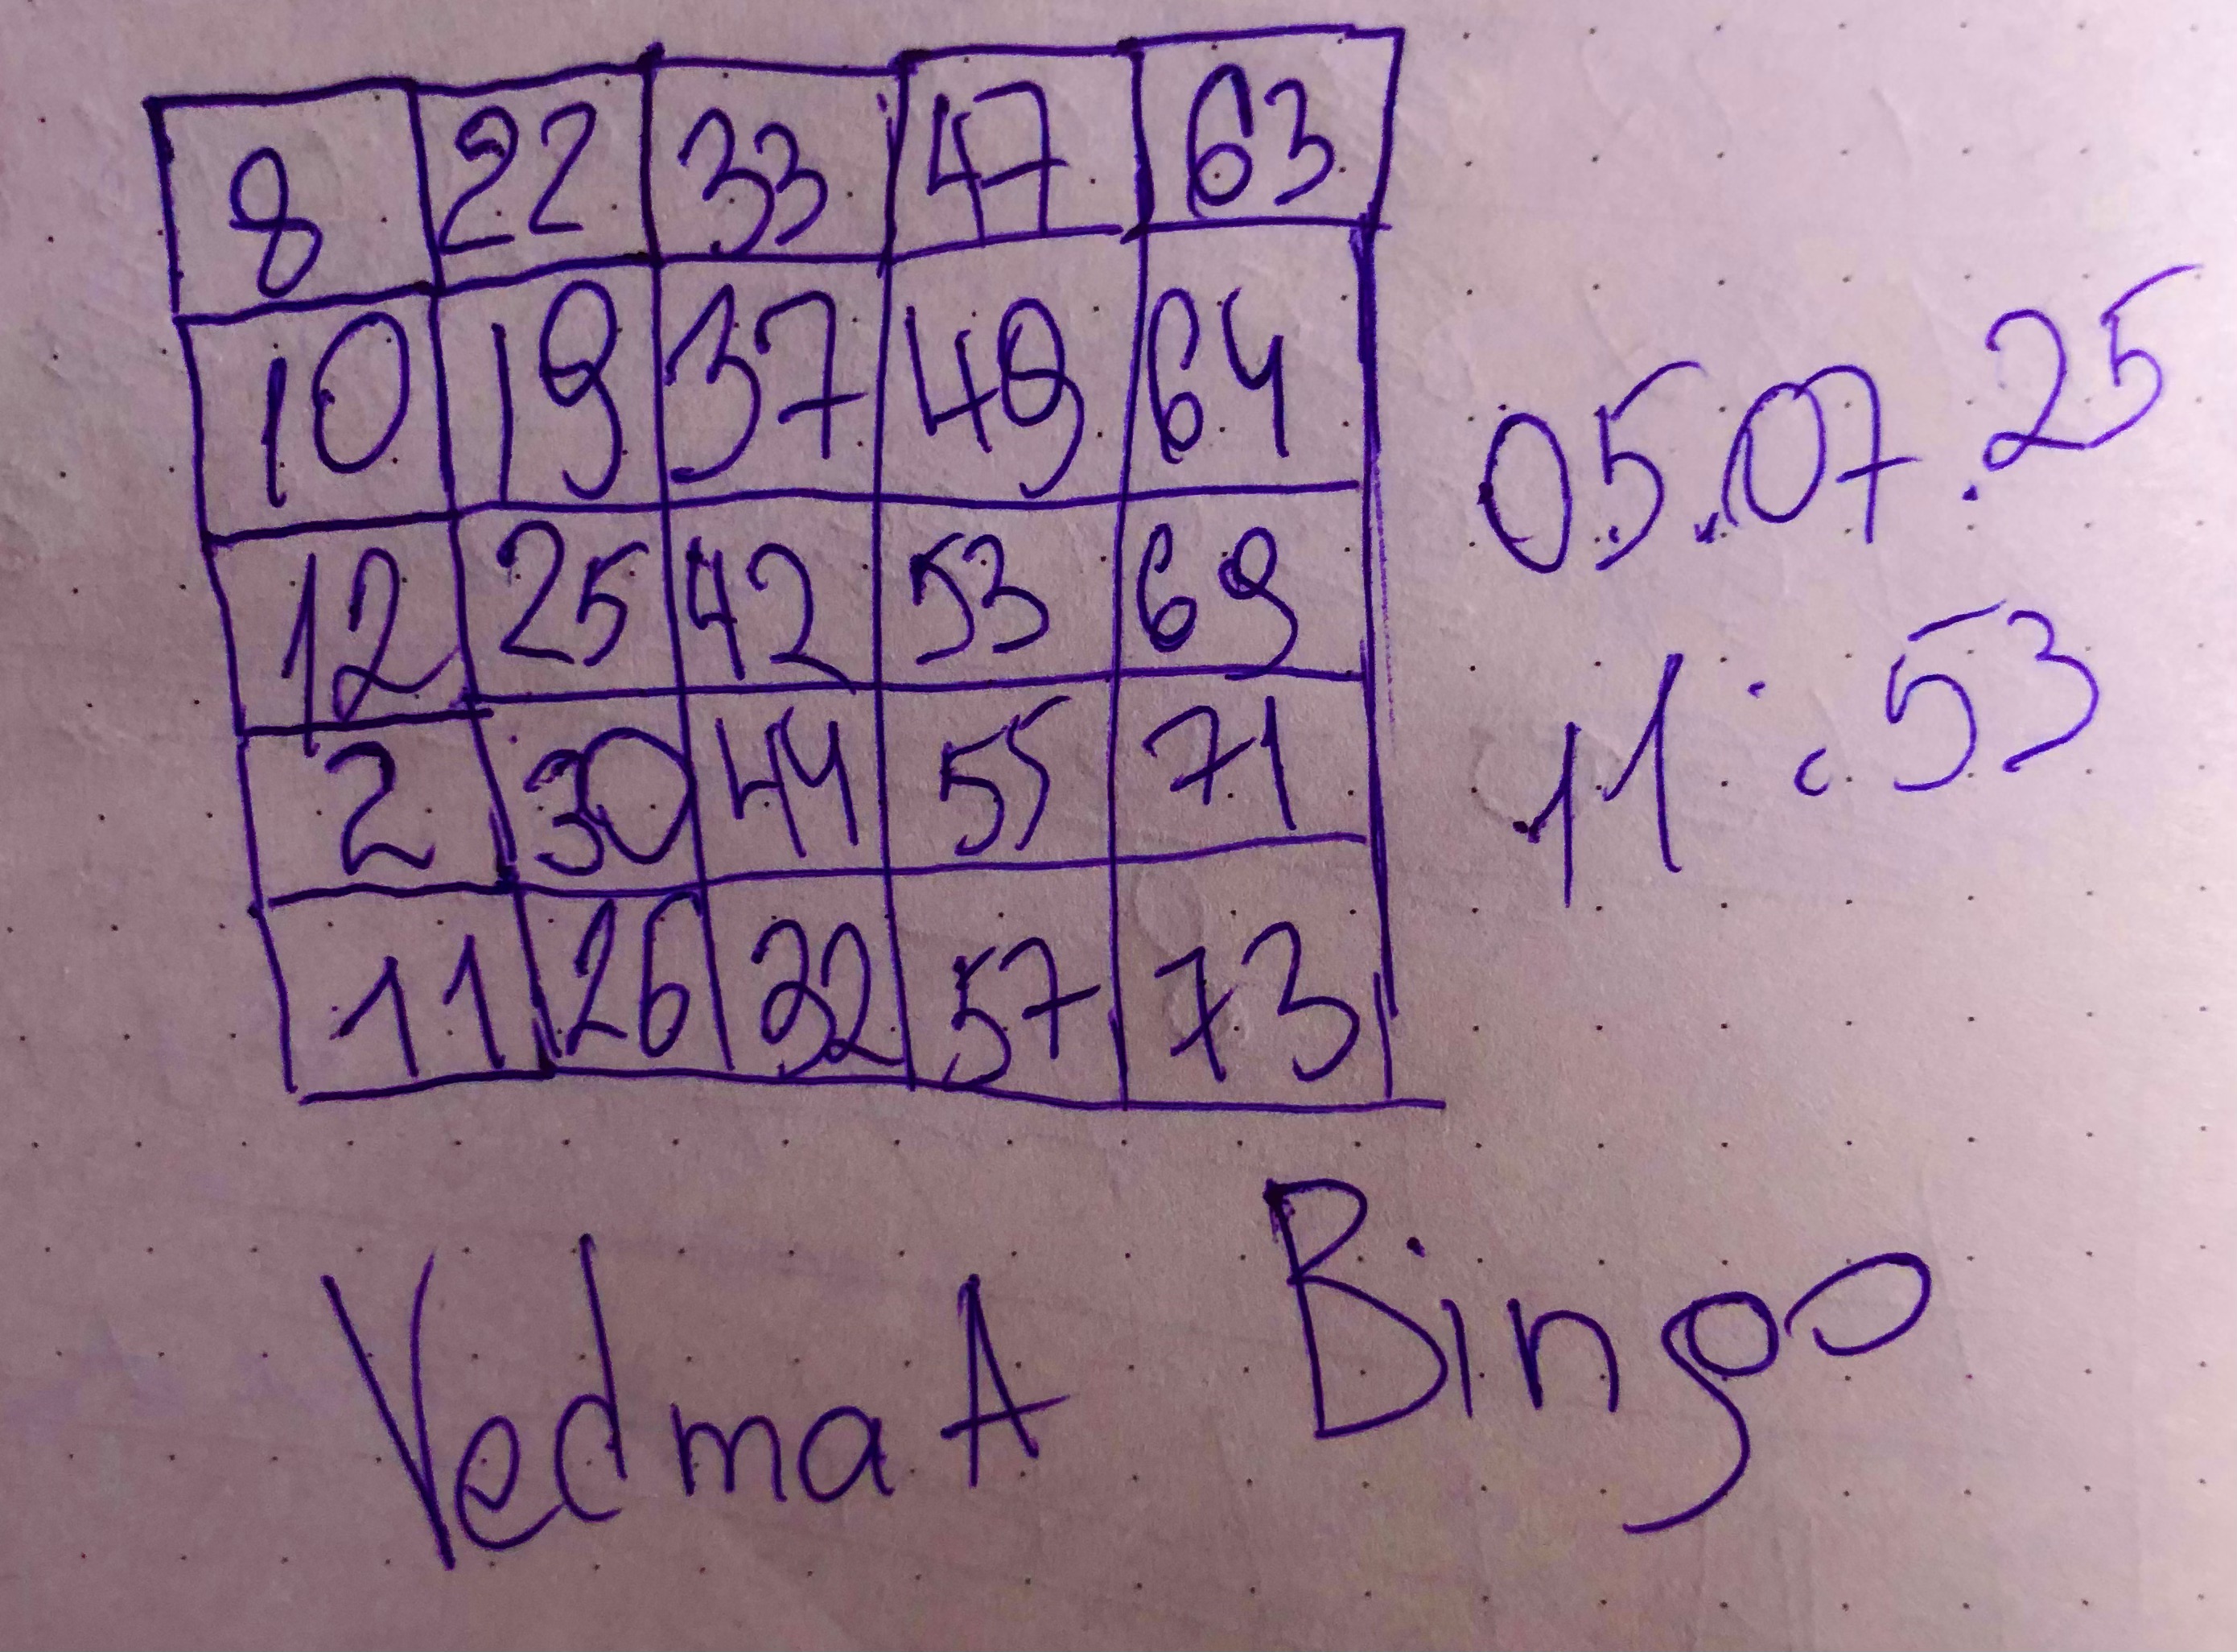 8 22 33 47 63
10 19 37 49 64
12 25 42 53 69
2 30 44 55 71
11 26 32 57 73
05.07.25
11:53
VedmaA Bingo